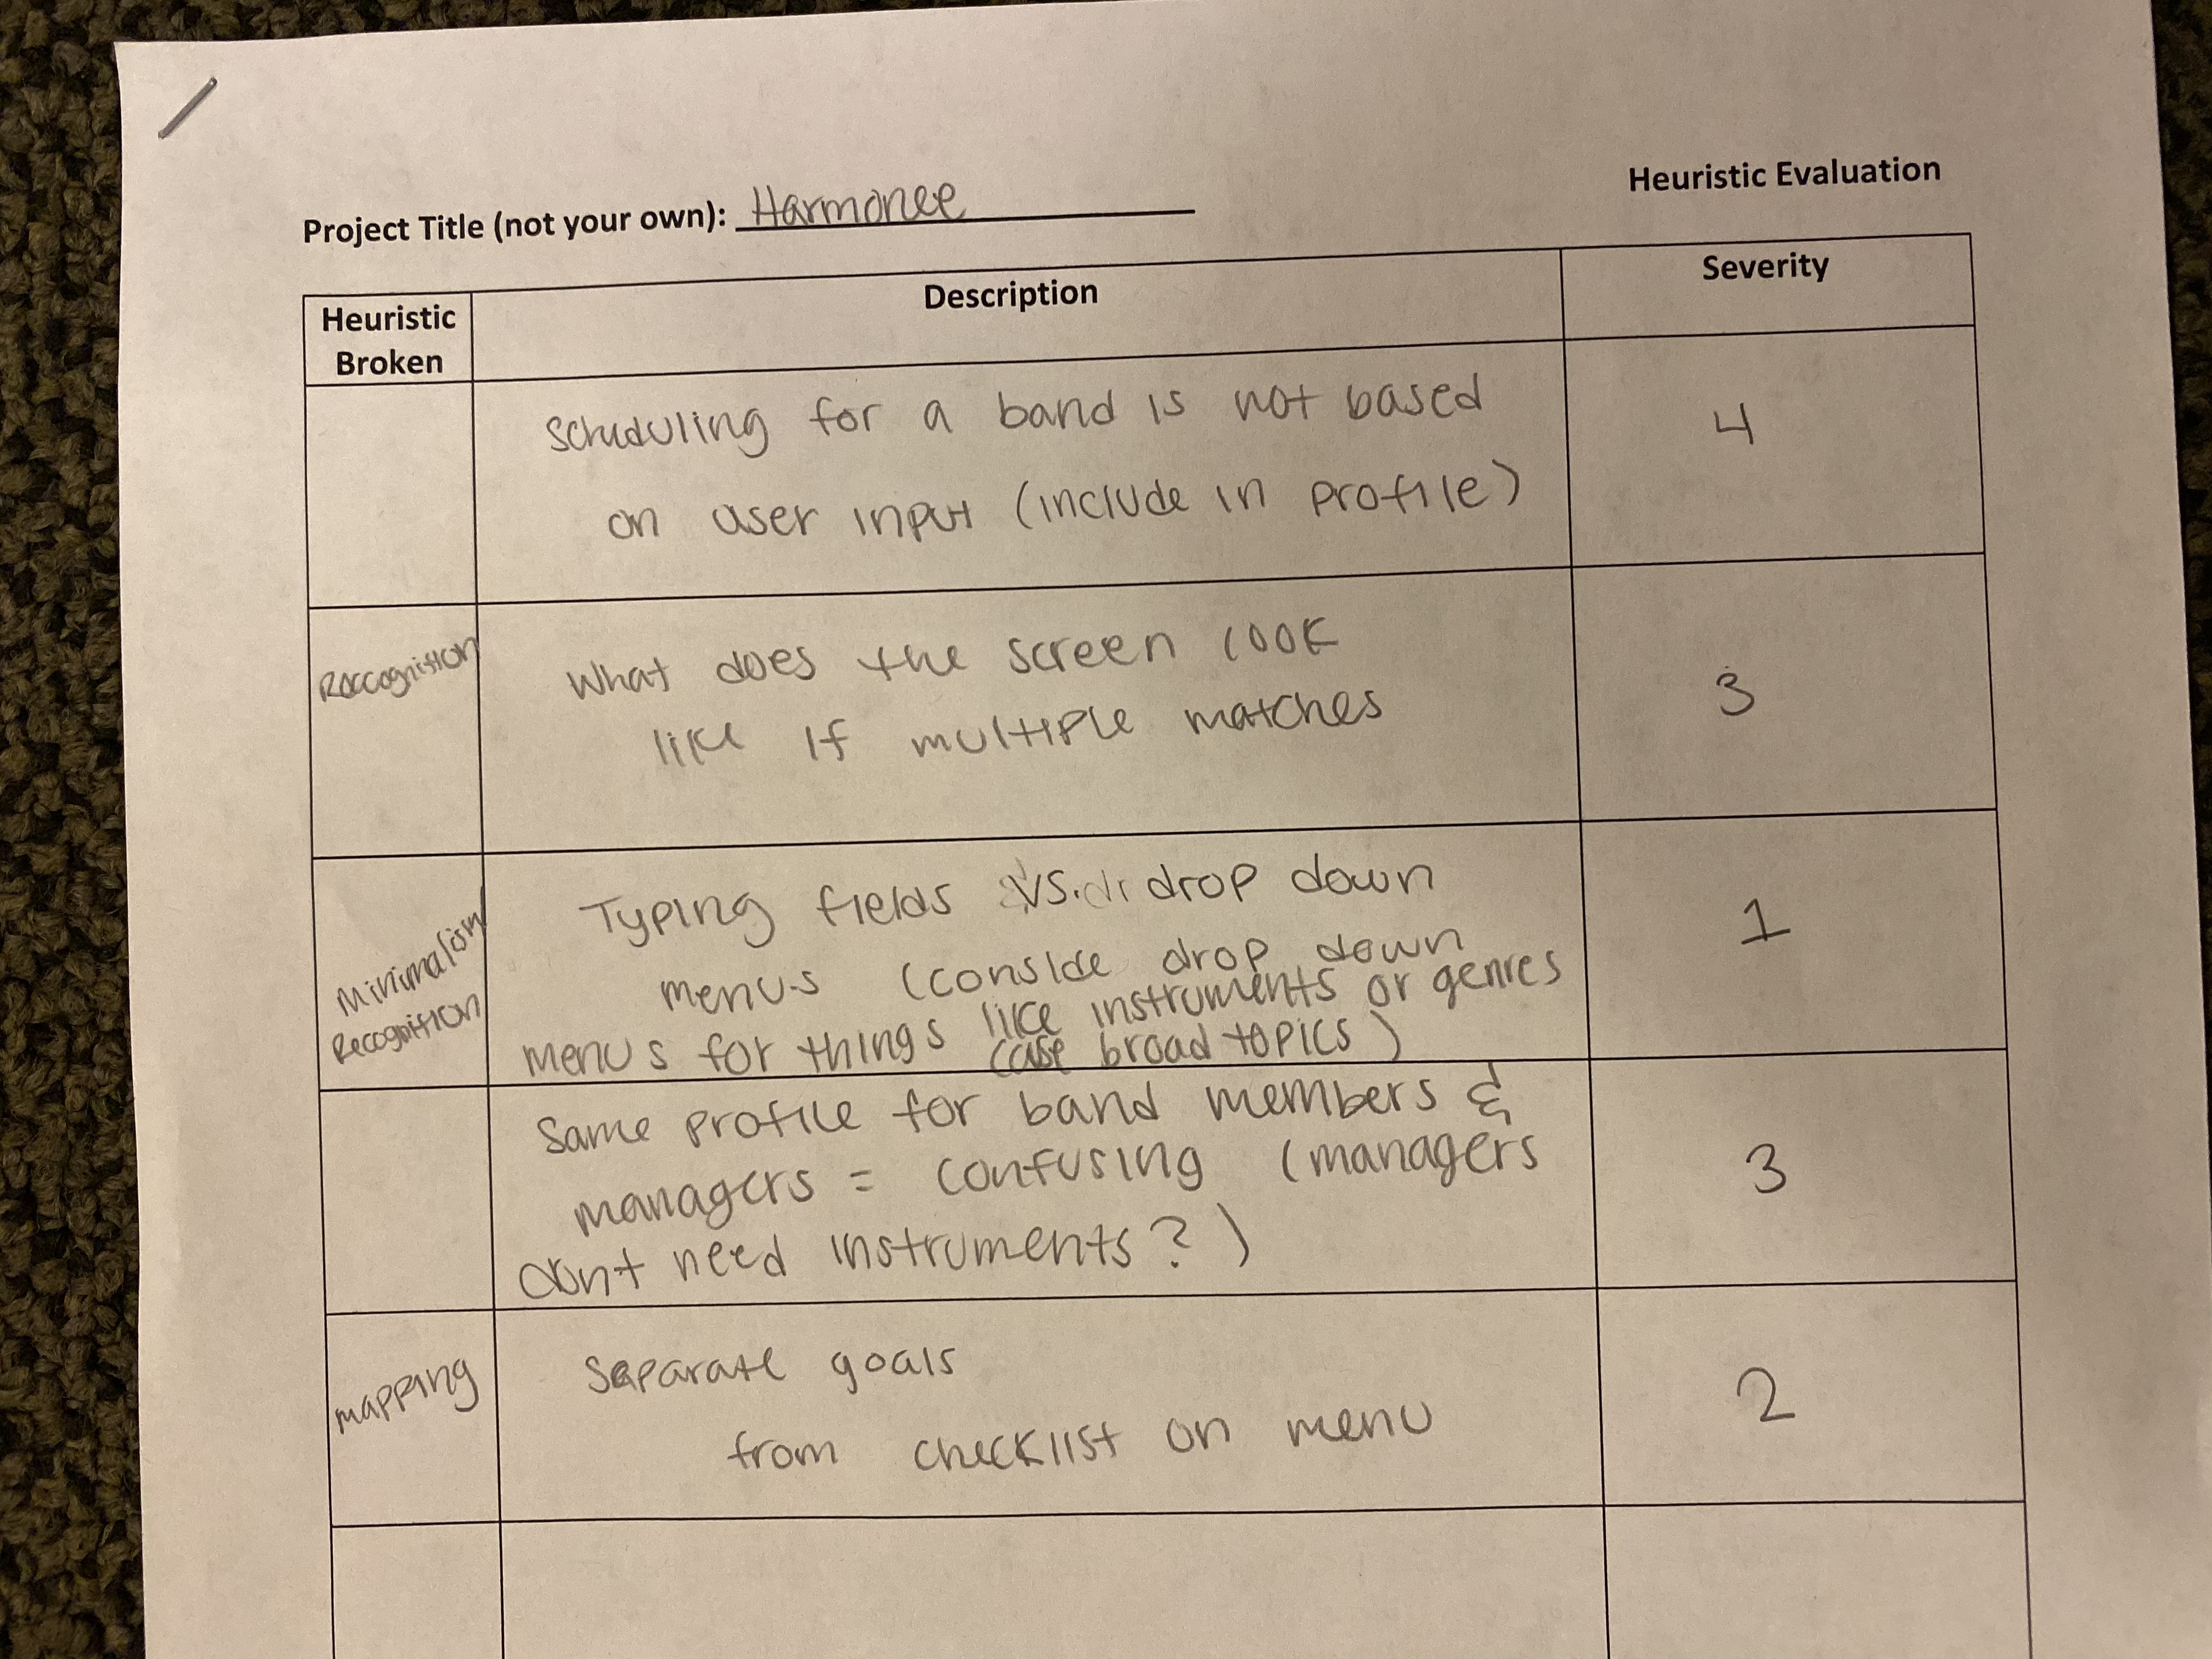 Heuristic Evaluation
Project Title (not your own): Harmonee
Heuristic Broken
Description
Severity
schuduling for a band is not based
on user input (include in profile)
4
Raccognition
What does the screen look
like if multiple matches
3
Minimalism
Recognition
Typing fields vs. drop down
menus (conside drop down
menus for things like instruments or genres
(are broad topics)
1
Same profile for band members &
managers = confusing (managers
dont need instruments?)
3
mapping
Saparate goals
from checklist on menu
2